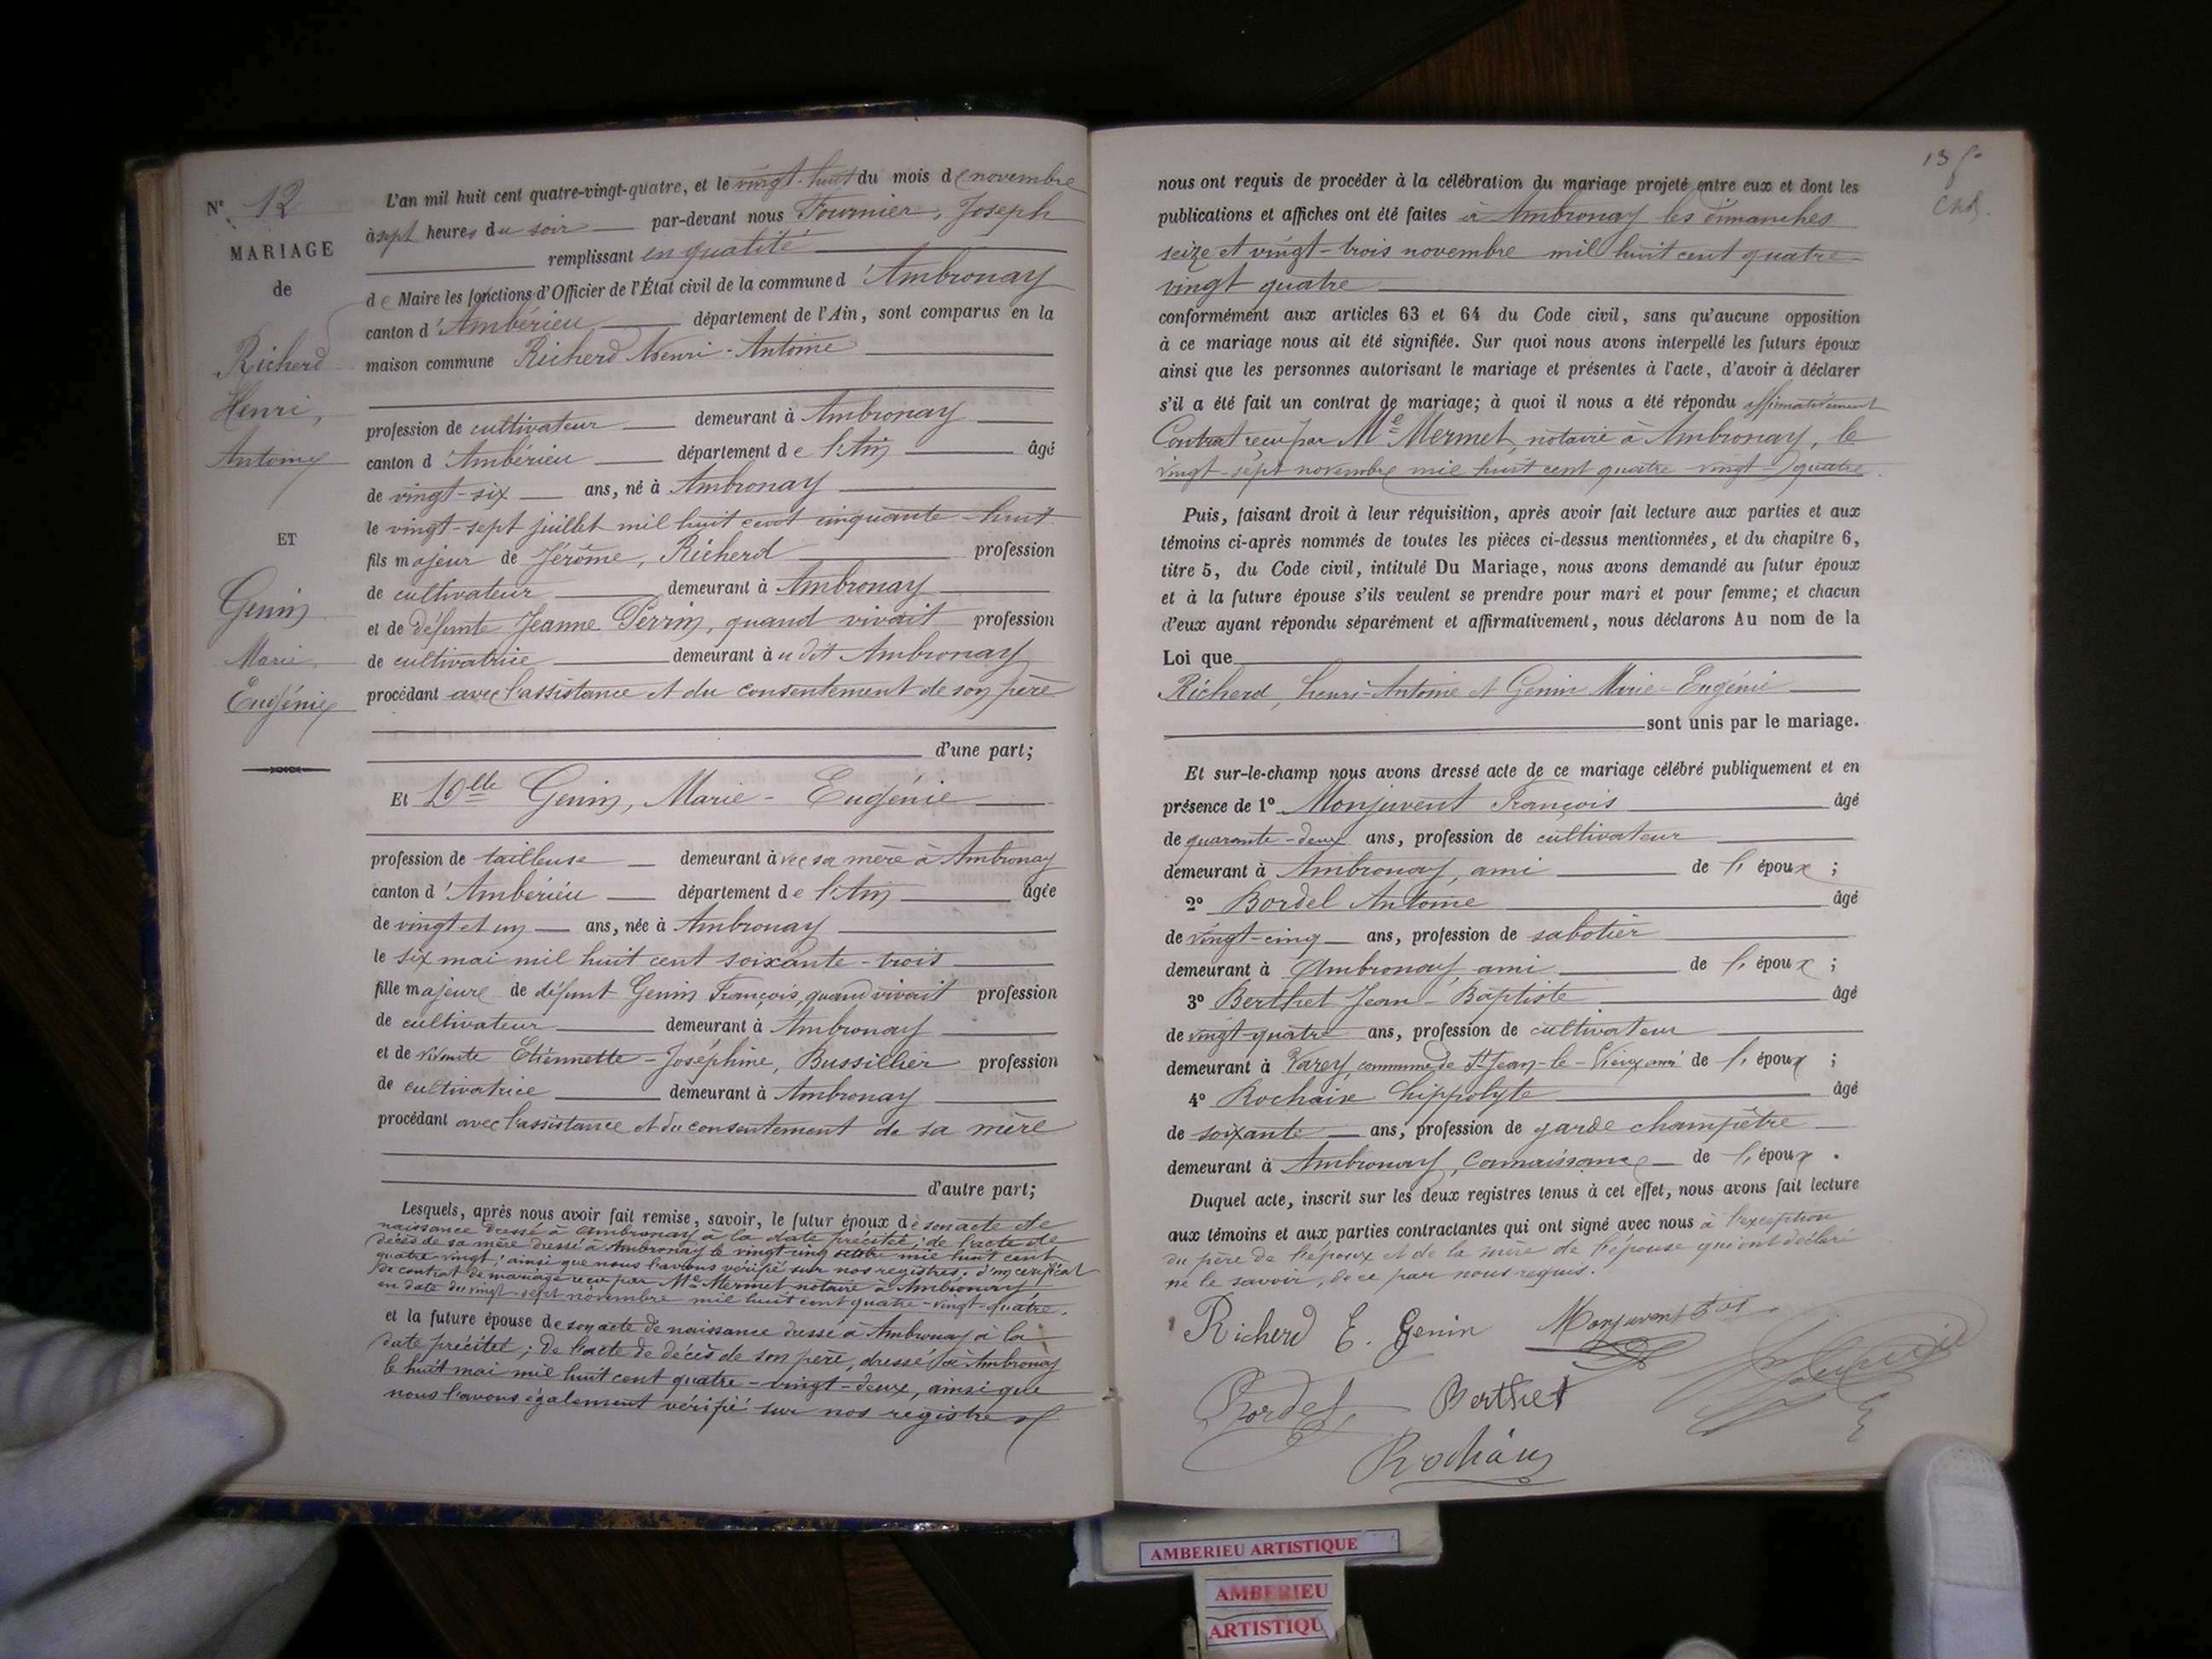 N° 12
MARIAGE
de
Richerd
Henri,
Antoine
ET
Genin
Marie
Eugénie
L'an mil huit cent quatre-vingt-quatre, et le vingt-huit du mois de novembre
à sept heures du soir par-devant nous Fournier, Joseph
remplissant en qualité
de Maire les fonctions d'Officier de l'État civil de la commune d'Ambronay
canton d'Ambérieu, département de l'Ain, sont comparus en la
maison commune Richerd Henri-Antoine
profession de cultivateur demeurant à Ambronay
canton d'Ambérieu département de l'Ain âgé
de vingt-six ans, né à Ambronay
le vingt-sept juillet mil huit cent cinquante-huit
fils majeur de Jérôme, Richerd profession
de cultivateur demeurant à Ambronay
et de défunte Jeanne Perrin, quand vivait profession
de cultivatrice demeurant à udit Ambronay
procédant avec l'assistance et du consentement de son père
d'une part;
Et Dlle Genin, Marie-Eugénie
profession de tailleuse demeurant avec sa mère à Ambronay
canton d'Ambérieu département de l'Ain âgée
de vingt et un ans, née à Ambronay
le six mai mil huit cent soixante-trois
fille majeure de défunt Genin François, quand vivait profession
de cultivateur demeurant à Ambronay
et de vivante Etiennette-Joséphine, Bussillier profession
de cultivatrice demeurant à Ambronay
procédant avec l'assistance et du consentement de sa mère
d'autre part;
Lesquels, après nous avoir fait remise, savoir, le futur époux de son acte de
naissance dressé à Ambronay à la date précitée; de l'acte de
décès de sa mère dressé à Ambronay le vingt-cinq octobre mil huit cent
quatre-vingt; ainsi que nous l'avons vérifié sur nos registres; d'un certificat
de contrat de mariage reçu par Me Mermet notaire à Ambronay
en date du vingt-sept novembre mil huit cent quatre-vingt-quatre.
et la future épouse de son acte de naissance dressé à Ambronay à la
date précitée; De l'acte de décès de son père, dressé à Ambronay
le huit mai mil huit cent quatre-vingt-deux, ainsi que
nous l'avons également vérifié sur nos registres
nous ont requis de procéder à la célébration du mariage projeté entre eux et dont les
publications et affiches ont été faites à Ambronay les dimanches
seize et vingt-trois novembre mil huit cent quatre-
vingt quatre
conformément aux articles 63 et 64 du Code civil, sans qu'aucune opposition
à ce mariage nous ait été signifiée. Sur quoi nous avons interpellé les futurs époux
ainsi que les personnes autorisant le mariage et présentes à l'acte, d'avoir à déclarer
s'il a été fait un contrat de mariage; à quoi il nous a été répondu affirmativement
Contrat reçu par Me Mermet, notaire à Ambronay, le
vingt-sept novembre mil huit cent quatre-vingt-quatre.
Puis, faisant droit à leur réquisition, après avoir fait lecture aux parties et aux
témoins ci-après nommés de toutes les pièces ci-dessus mentionnées, et du chapitre 6,
titre 5, du Code civil, intitulé Du Mariage, nous avons demandé au futur époux
et à la future épouse s'ils veulent se prendre pour mari et pour femme; et chacun
d'eux ayant répondu séparément et affirmativement, nous déclarons Au nom de la
Loi que
Richerd, henri-Antoine et Genin Marie-Eugénie
sont unis par le mariage.
Et sur-le-champ nous avons dressé acte de ce mariage célébré publiquement et en
présence de 1° Monjuvent François âgé
de quarante-deux ans, profession de cultivateur
demeurant à Ambronay, ami de l'époux;
2° Bordel Antoine âgé
de vingt-cinq ans, profession de sabotier
demeurant à Ambronay, ami de l'époux;
3° Berthet Jean-Baptiste âgé
de vingt-quatre ans, profession de cultivateur
demeurant à Varey, commune de St Jean-le-Vieux ami de l'époux;
4° Rochaix hippolyte âgé
de soixante ans, profession de garde champêtre
demeurant à Ambronay, Connaissance de l'époux.
Duquel acte, inscrit sur les deux registres tenus à cet effet, nous avons fait lecture
aux témoins et aux parties contractantes qui ont signé avec nous à l'exception
du père de l'époux et de la mère de l'épouse qui ont déclaré
ne le savoir, de ce par nous requis.
Richerd E. Genin Monjuvent
Bordel Berthet
Rochaix
AMBERIEU ARTISTIQUE
AMBERIEU
ARTISTIQU